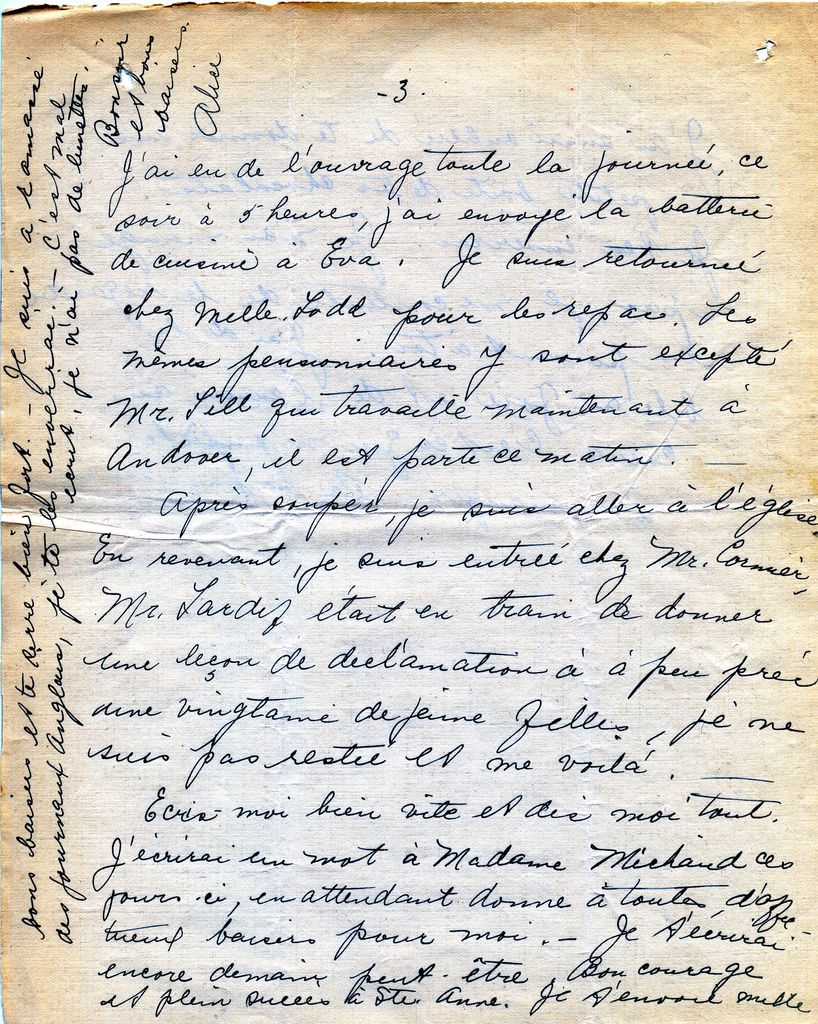 - 3 -
J'ai eu de l'ouvrage toute la journée, ce
soir à 5 heures, j'ai envoyé la batterie
de cuisine à Eva. Je suis retournée
chez Melle. Todd pour les repas. Les
mêmes pensionnaires y sont excepté
Mr. Till qui travaille maintenant à
Andover, il est parte ce matin. —
Après souper, je suis aller à l'église.
En revenant, je suis entrée chez Mr. Cormier,
Mr. Tardif était en train de donner
une leçon de déclamation à à peu près
une vingtaine de jeune filles, je ne
suis pas restée et me voilà. —
Ecris-moi bien vite et dis moi tout.
J'écrirai un mot à Madame Michaud ces
jours-ci, en attendant donne à toutes d'affec-
tueux baisers pour moi. - Je t'écrirai
encore demain peut-être. Bon courage
et plein succès à Ste. Anne. Je t'envoie mille
bons baisers et te serre bien fort. - Je suis à ramassé
des journaux Anglais, je te les enverrai. - C'est mal
écrit, je n'ai pas de lunettes. -
Bonsoir
et bons
baisers.
Alice